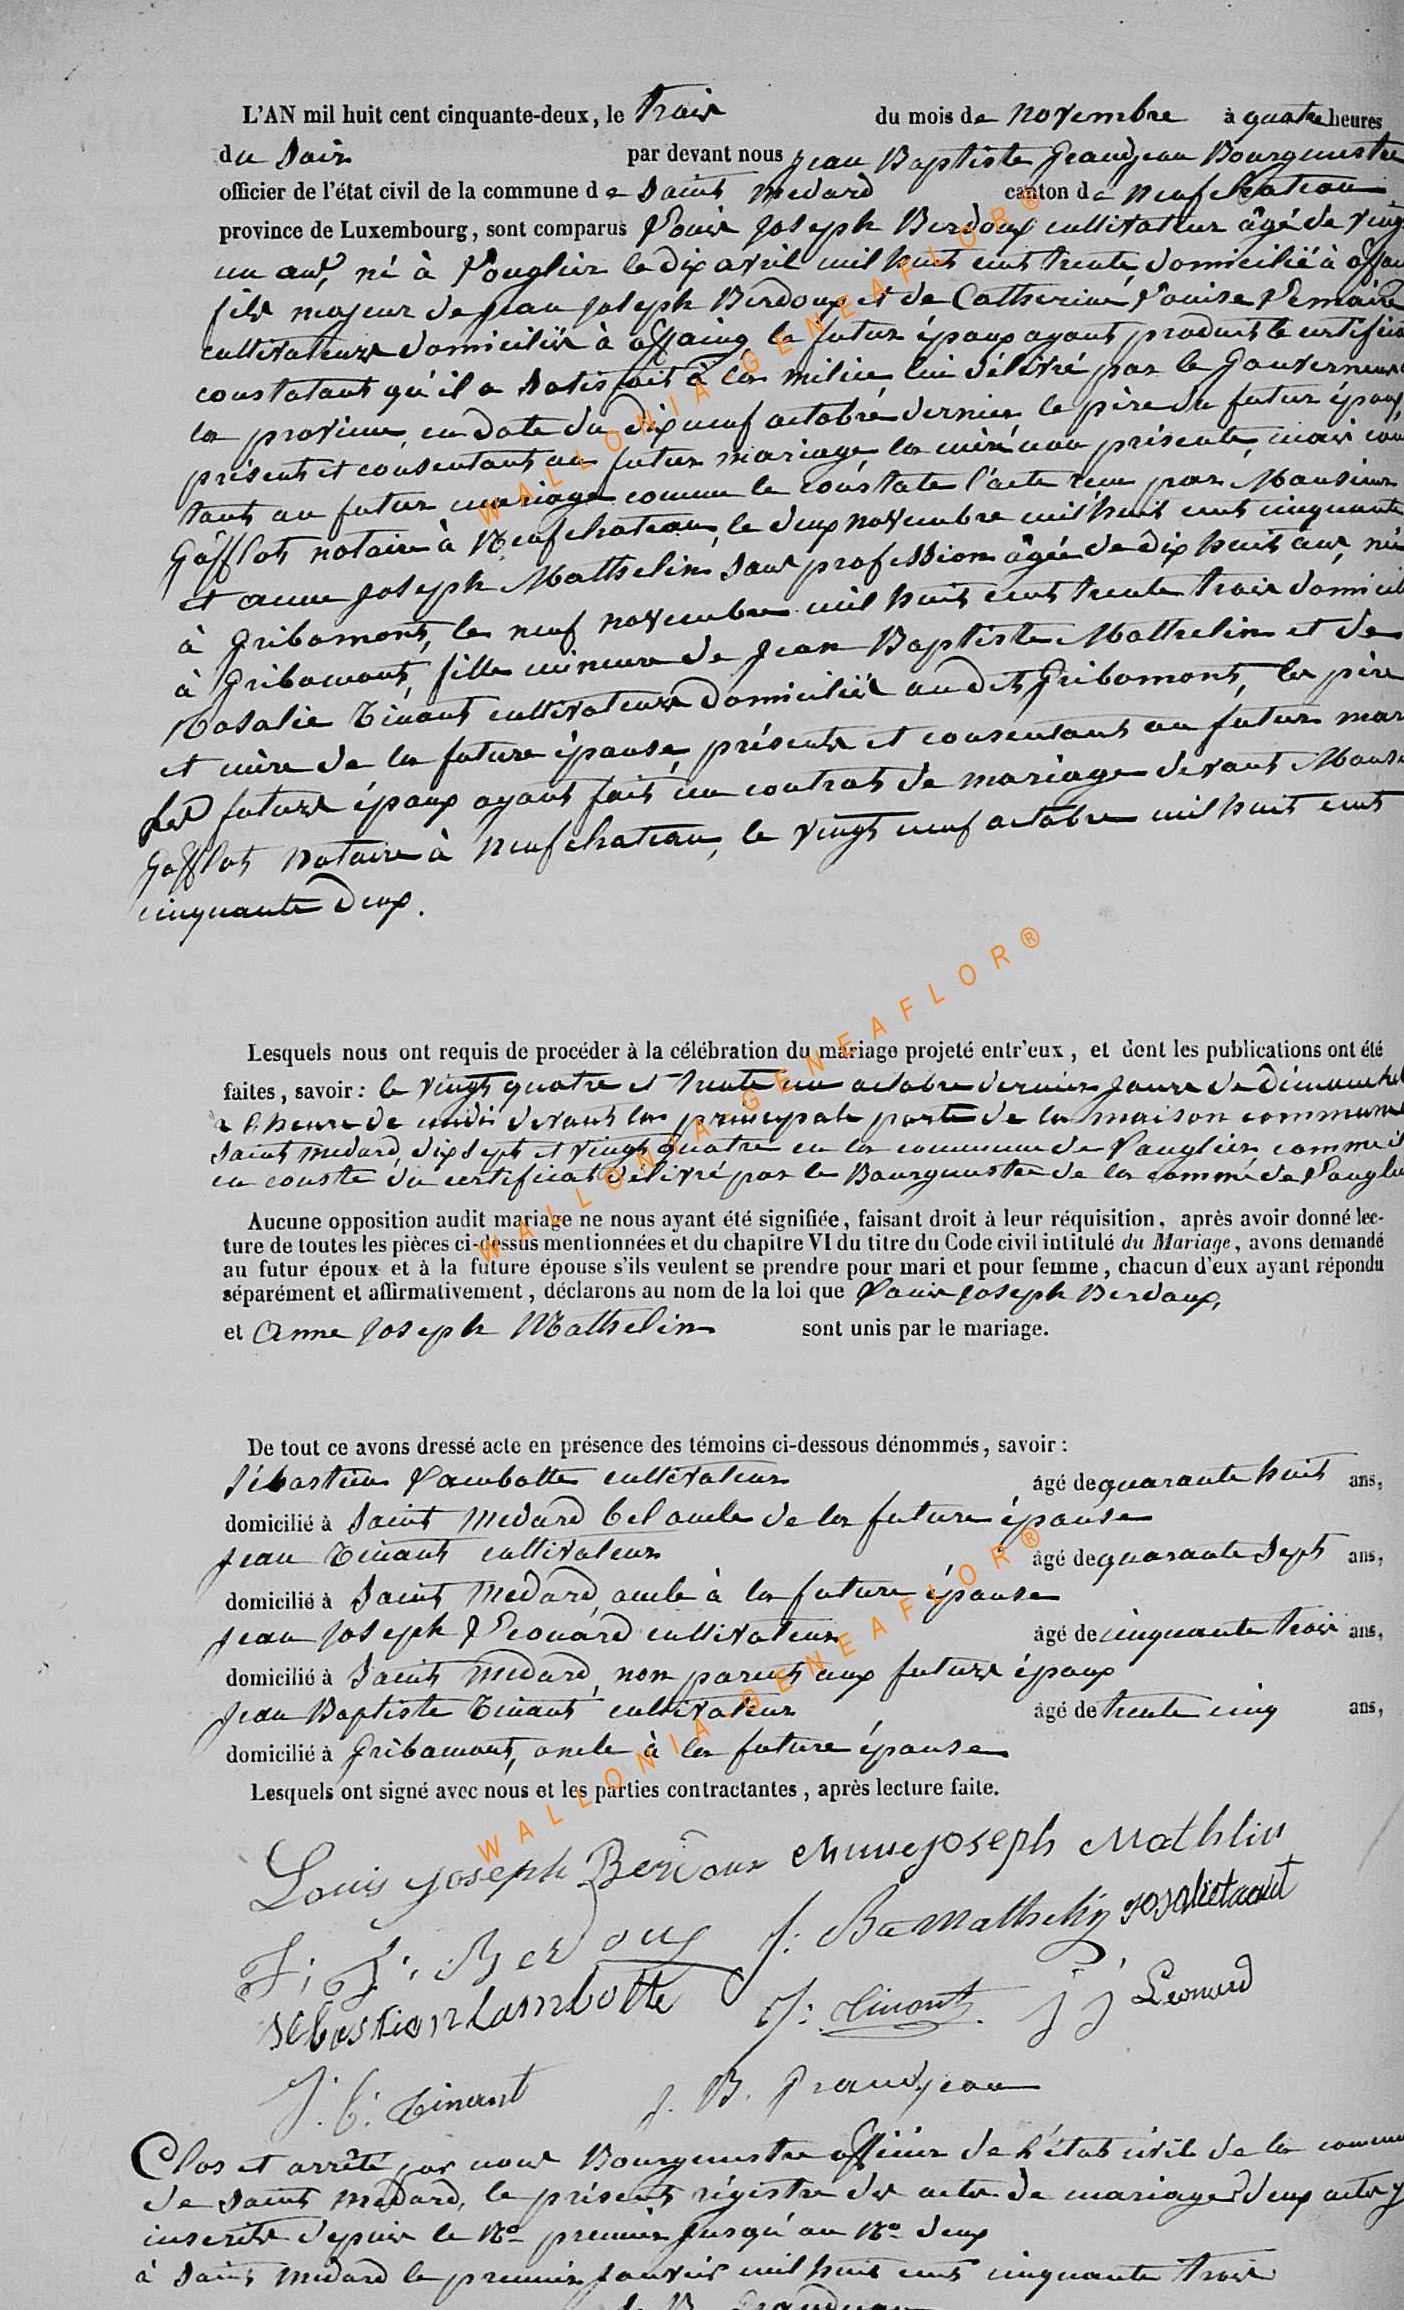 L'AN mil huit cent cinquante-deux, le trois du mois de novembre à quatre heures
du Soir par devant nous Jean Baptiste Grandjean Bourgmestre
officier de l'état civil de la commune de Saint Medard canton de Neufchateau
province de Luxembourg, sont comparus Louis Joseph Berdoux cultivateur âgé de vingt
un ans, né à Longlier le dix avril mil huit cent trente, domicilié à
fils majeur de Jean Joseph Berdoux et de Catherine Louise Lemaire
cultivateurs domiciliés à offaing, le futur époux ayant produit le certificat
constatant qu'il a Satisfait à la milice lui délivré par le Gouverneur
la province, en date du dix neuf octobre dernier, le père du futur époux,
présent et consentant au futur mariage, la mère non présente, mais con
tant au futur mariage comme le constate l'acte reçu par Monsieur
Gofflot notaire à Neufchateau, le deux novembre mil huit cent cinquante
et anne Joseph Mathelin Sans profession âgée de dix huit ans, née
à Gribomont, le neuf novembre mil huit cent trente trois domicil
à Gribomont, fille mineure de Jean Baptiste Mathelin et de
Rosalie Tinant cultivateurs domiciliés audit Gribomont, les père
et mère de la future épouse, présents et consentant au futur mar
Les futurs époux ayant fait un contrat de mariage devant Monsi
Gofflot notaire à Neufchateau, le vingt neuf octobre mil huit cent
cinquante deux.
Lesquels nous ont requis de procéder à la célébration du mariage projeté entr'eux, et dont les publications ont été
faites, savoir : le vingt quatre et trente un octobre dernier Jours de dimanche
à l'heure de midi devant la principale porte de la maison commune
Saint Medard, dix Sept et vingt quatre en la commune de Longlier, comme il
en conste du certificat délivré par le Bourgmestre de la comme de Longlier
Aucune opposition audit mariage ne nous ayant été signifiée, faisant droit à leur réquisition, après avoir donné lec-
ture de toutes les pièces ci-dessus mentionnées et du chapitre VI du titre du Code civil intitulé du Mariage, avons demandé
au futur époux et à la future épouse s'ils veulent se prendre pour mari et pour femme, chacun d'eux ayant répondu
séparément et affirmativement, déclarons au nom de la loi que Louis Joseph Berdoux,
et Anne Joseph Mathelin sont unis par le mariage.
De tout ce avons dressé acte en présence des témoins ci-dessous dénommés, savoir :
Sébastien Lambotte cultivateur âgé de quarante huit ans,
domicilié à Saint Medard bel oncle de la future épouse
Jean Tinant cultivateur âgé de quarante Sept ans,
domicilié à Saint Medard, oncle à la future épouse
Jean Joseph Léonard cultivateur âgé de cinquante trois ans,
domicilié à Saint Medard, non parent aux futurs époux
Jean Baptiste Tinant cultivateur âgé de trente cinq ans,
domicilié à Gribomont, oncle à la future épouse
Lesquels ont signé avec nous et les parties contractantes, après lecture faite.
Louis Joseph Berdoux Anne joseph Mathlin
J. J. Berdoux J: Ba Mathelin rosalietinant
sebastien lambotte J: Tinant. j j Leonard
J. B. Tinant J. B. Grandjean
Clos et arrêté par nous Bourgmestre officier de l'état civil de la commune
de Saint Medard, le présent régistre des actes de mariages deux actes y
inscrits depuis le No premier jusqu'au No deux
à Saint Medard le premier Janvier mil huit cent cinquante trois
J. B. Grandjean
WALLONIA-GENEAFLOR®
WALLONIA-GENEAFLOR®
WALLONIA-GENEAFLOR®